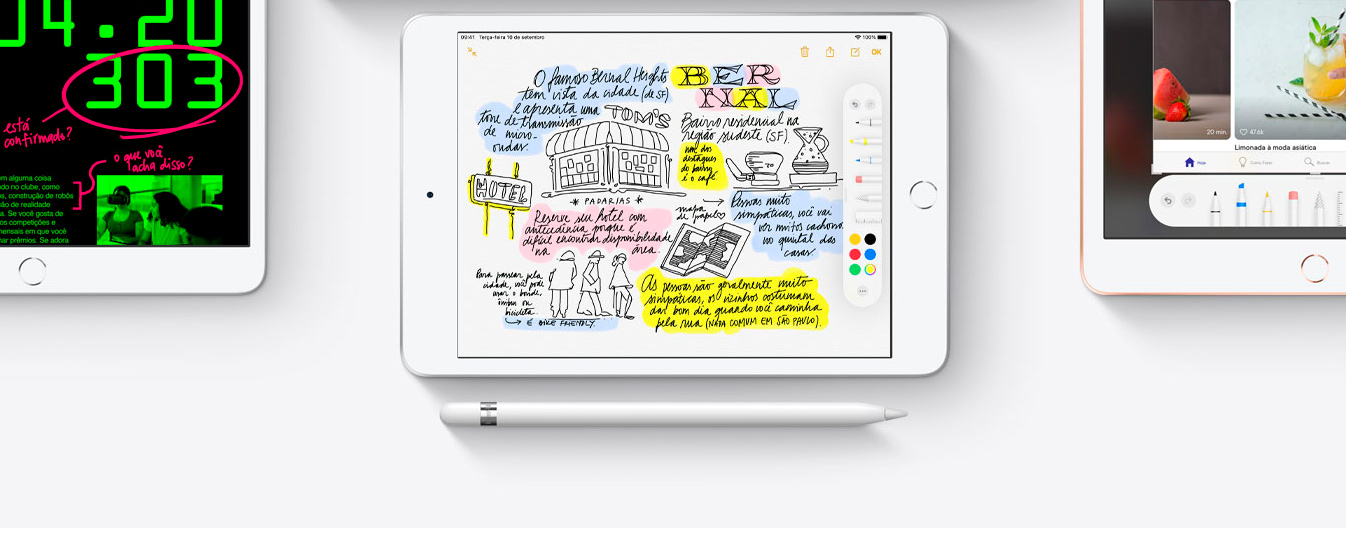 04.20
303
está
confirmado?
o que você
acha disso?
em alguma coisa
ndo no clube, como
s, construção de robôs
ção de realidade
a. Se você gosta de
os competições e
mensais em que você
har prêmios. Se adora
09:41 Terça-feira 10 de setembro
100%
OK
O famoso Bernal Heights
tem vista da cidade (de SF)
e apresenta uma
torre de transmissão
de micro-
ondas.
BER
NAL
TOM'S
Bairro residencial na
região sudeste (SF).
um dos
destaques
do bairro
é o café.
HOTEL
* PADARIAS *
Reserve seu hotel com
antecedência porque é
difícil encontrar disponibilidade
na área.
mapa
de papel
Pessoas muito
simpáticas, você vai
ver muitos cachorros
no quintal das
casas.
Para passear pela
cidade, você pode
usar o bonde,
ônibus ou
bicicleta.
É BIKE FRIENDLY.
As pessoas são geralmente muito
simpáticas, os vizinhos costumam
dar bom dia quando você caminha
pela rua (NADA COMUM EM SÃO PAULO).
20 min.
47.6k
Limonada à moda asiática
Hoje
Como Fazer
Buscar